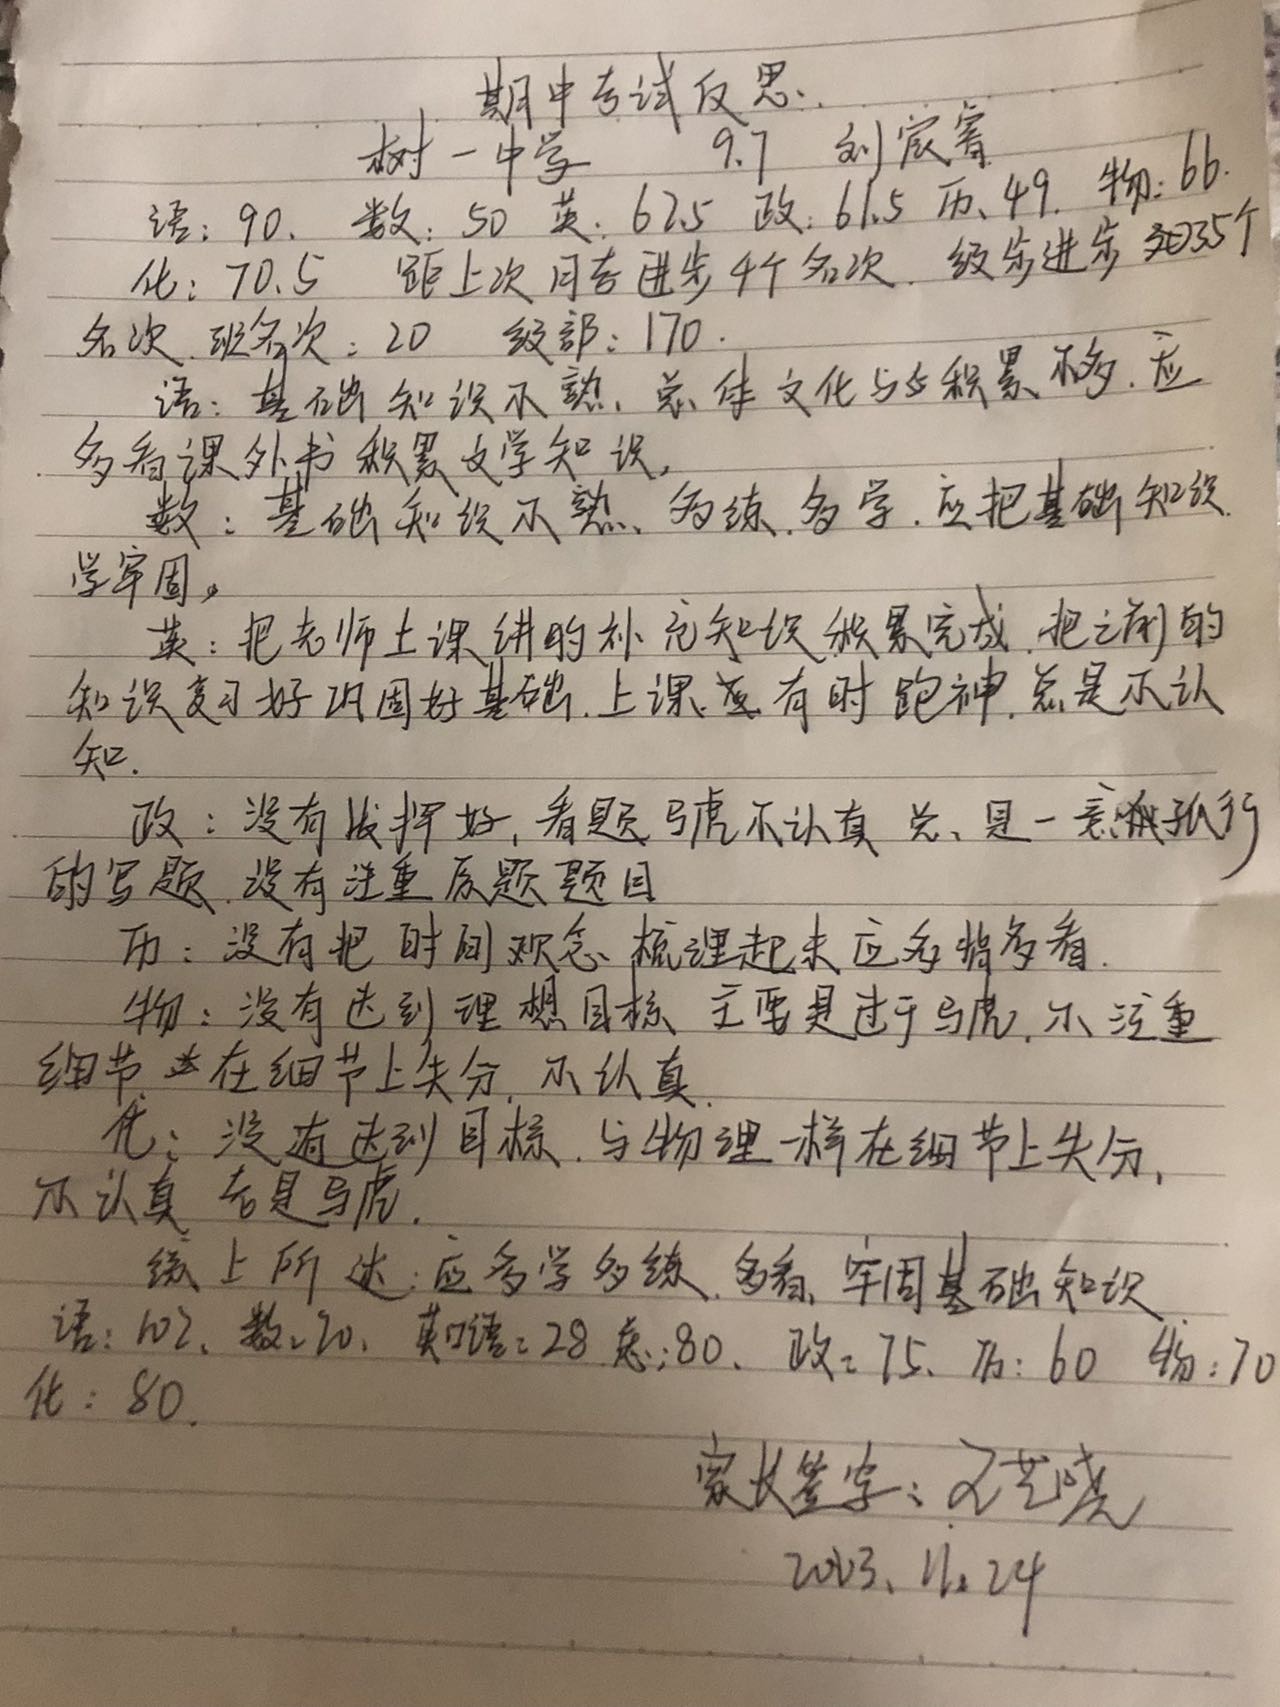 期中考试反思.
树一中学 9.7 刘宸睿
语: 90. 数: 50 英: 62.5 政: 61.5 历: 49. 物: 66.
化: 70.5 距上次月考进步4个名次. 级步进步 35个
名次. 班名次: 20 级部: 170.
语: 基础知识不熟、总体文化与积累不多. 应
多看课外书积累文学知识,
数: 基础知识不熟、多练. 多学. 应把基础知识
学牢固。
英: 把老师上课讲的补充知识积累完成. 把之前的
知识复习好巩固好基础. 上课 有时跑神. 总是不认
知.
政: 没有发挥好, 看题马虎不认真 总是一意孤行
的写题. 没有注重原题题目
历: 没有把时间观念梳理起来应多背多看.
物: 没有达到理想目标 主要是过于马虎, 不注重
细节 在细节上失分, 不认真.
化: 没有达到目标. 与物理一样在细节上失分,
不认真 老是马虎.
综上所述: 应多学多练. 多看、牢固基础知识
语: 102. 数: 70. 英口语: 28 总: 80. 政: 75. 历: 60 物: 70
化: 80.
家长签字:
2023. 11. 24